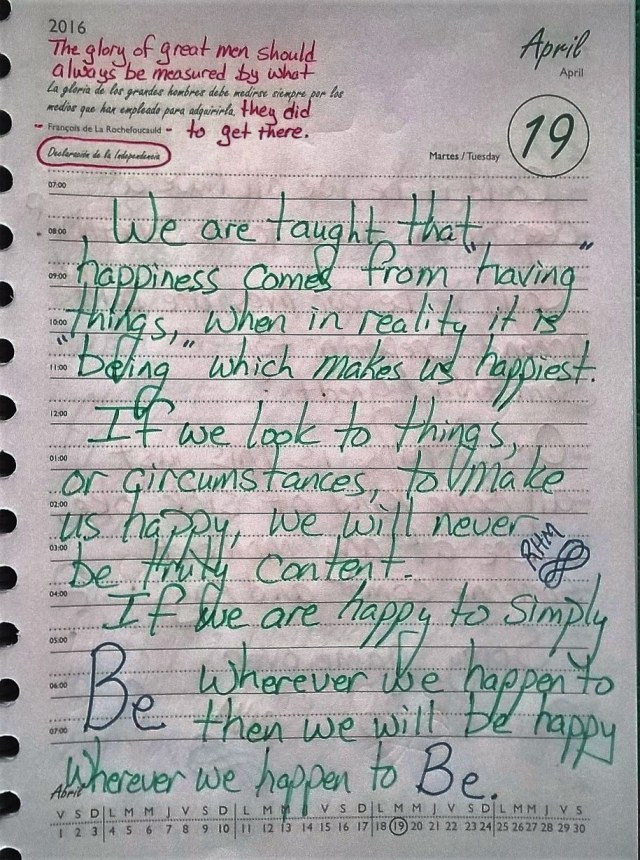 2016
April
The glory of great men should
always be measured by what
La gloria de los grandes hombres debe medirse siempre por los
April
medios que han empleado para adquirirla. they did
- François de La Rochefoucauld - to get there.
19
Declaración de la Independencia
Martes / Tuesday
07:00
08:00 We are taught that
09:00 happiness comes from "having"
10:00 "things," when in reality it is
11:00 being" which makes us happiest.
12:00 If we look to things,
01:00 or circumstances, to make
02:00 us happy, we will never
03:00 be truly content. RHM
04:00 If we are happy to simply
05:00
06:00 Be wherever we happen to
07:00 then we will be happy
wherever we happen to Be.
Abril
V S D L M M J V S D L M M J V S D L M M J V S D L M M J V S
1 2 3 4 5 6 7 8 9 10 11 12 13 14 15 16 17 18 19 20 21 22 23 24 25 26 27 28 29 30